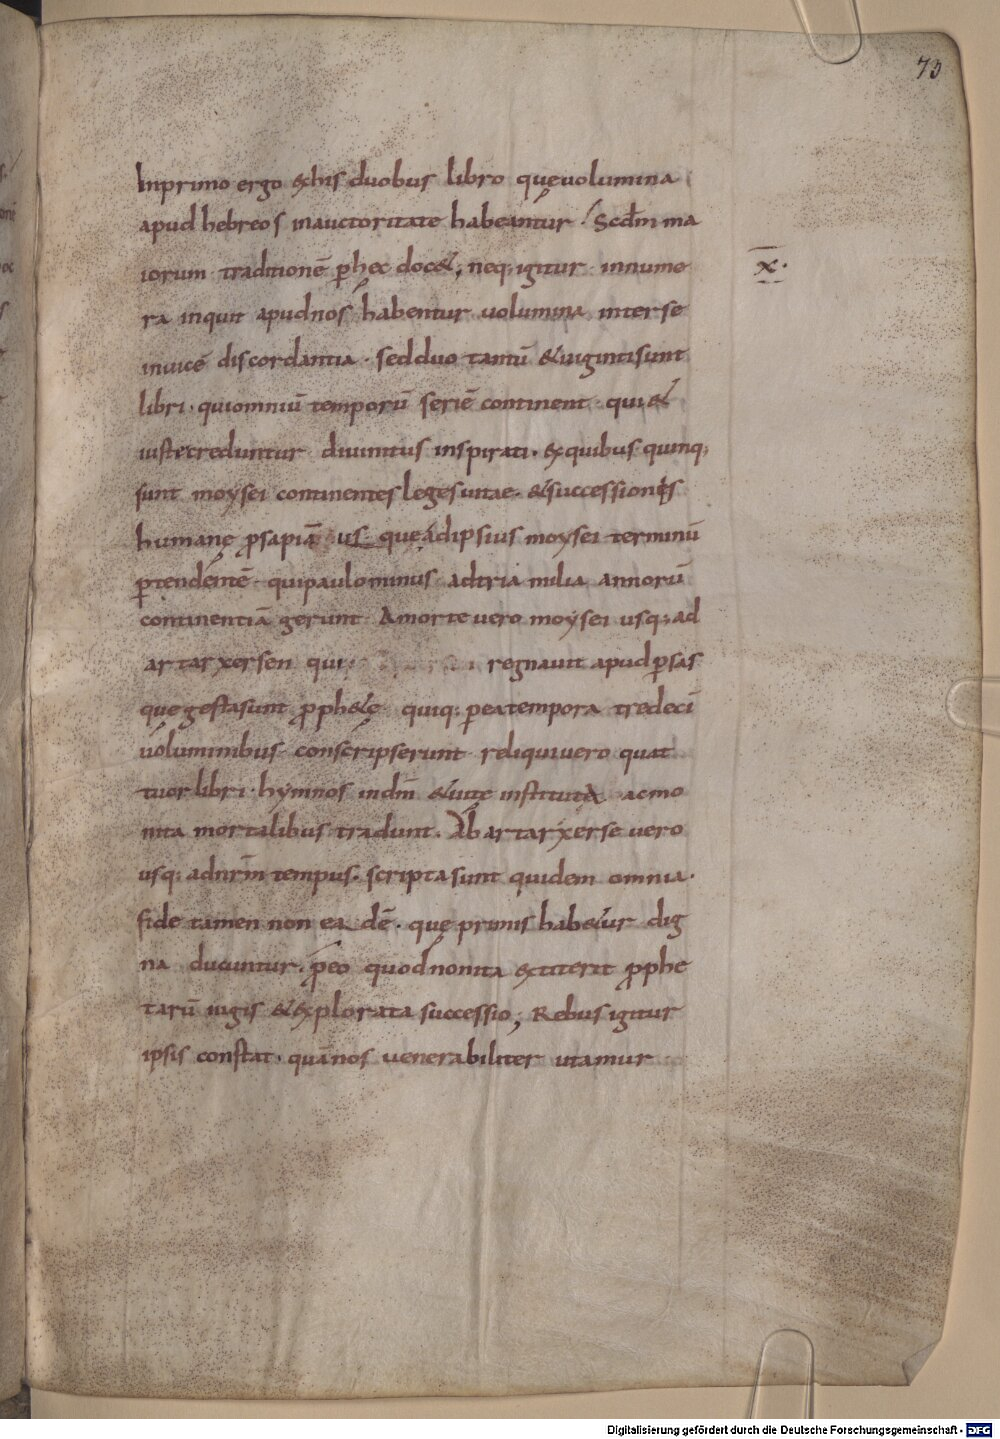 73
Inprimo ergo &his duobus libro quęuolumina
apud hebreos inauctoritate habeantur. Scdm ma
iorum traditionē phec doc&; neq; igitur innume
x̄.
ra inquit apudnos habentur uolumina interse
inuicē discordantia. sedduo tantū &uigintisunt
libri. quiomniū temporū seriē continent. qui&
iustecreduntur diuinitus inspirati. exquibus quinq;
sunt moysei continentes leges uitae. &successiones
humanę prosapiā us quęadipsius moysei terminū
ptendentē. quipaulominus adtria milia annorū
continentiā gerunt. Amorte uero moysei usq; ad
artarxersen qui regnauit apud psas
quę gestasunt proph&ę quiq; peatempora tredecī
uoluminibus conscripserunt. reliquiuero quat
tuor libri. hymnos indm̄ &uitę instituta acmo
nita mortalibus tradunt. Ab artarxerse uero
usq; adnrm̄ tempus. scripta sunt quidem omnia.
fide tamen non ea dē. quę primis hab&ur dig
na ducuntur. pro eo quod nonita extiterit prophe
tarū iugis &explorata successio; Rebus igitur
ipsis constat. quānos uenerabiliter utamur
Digitalisierung gefördert durch die Deutsche Forschungsgemeinschaft - DFG